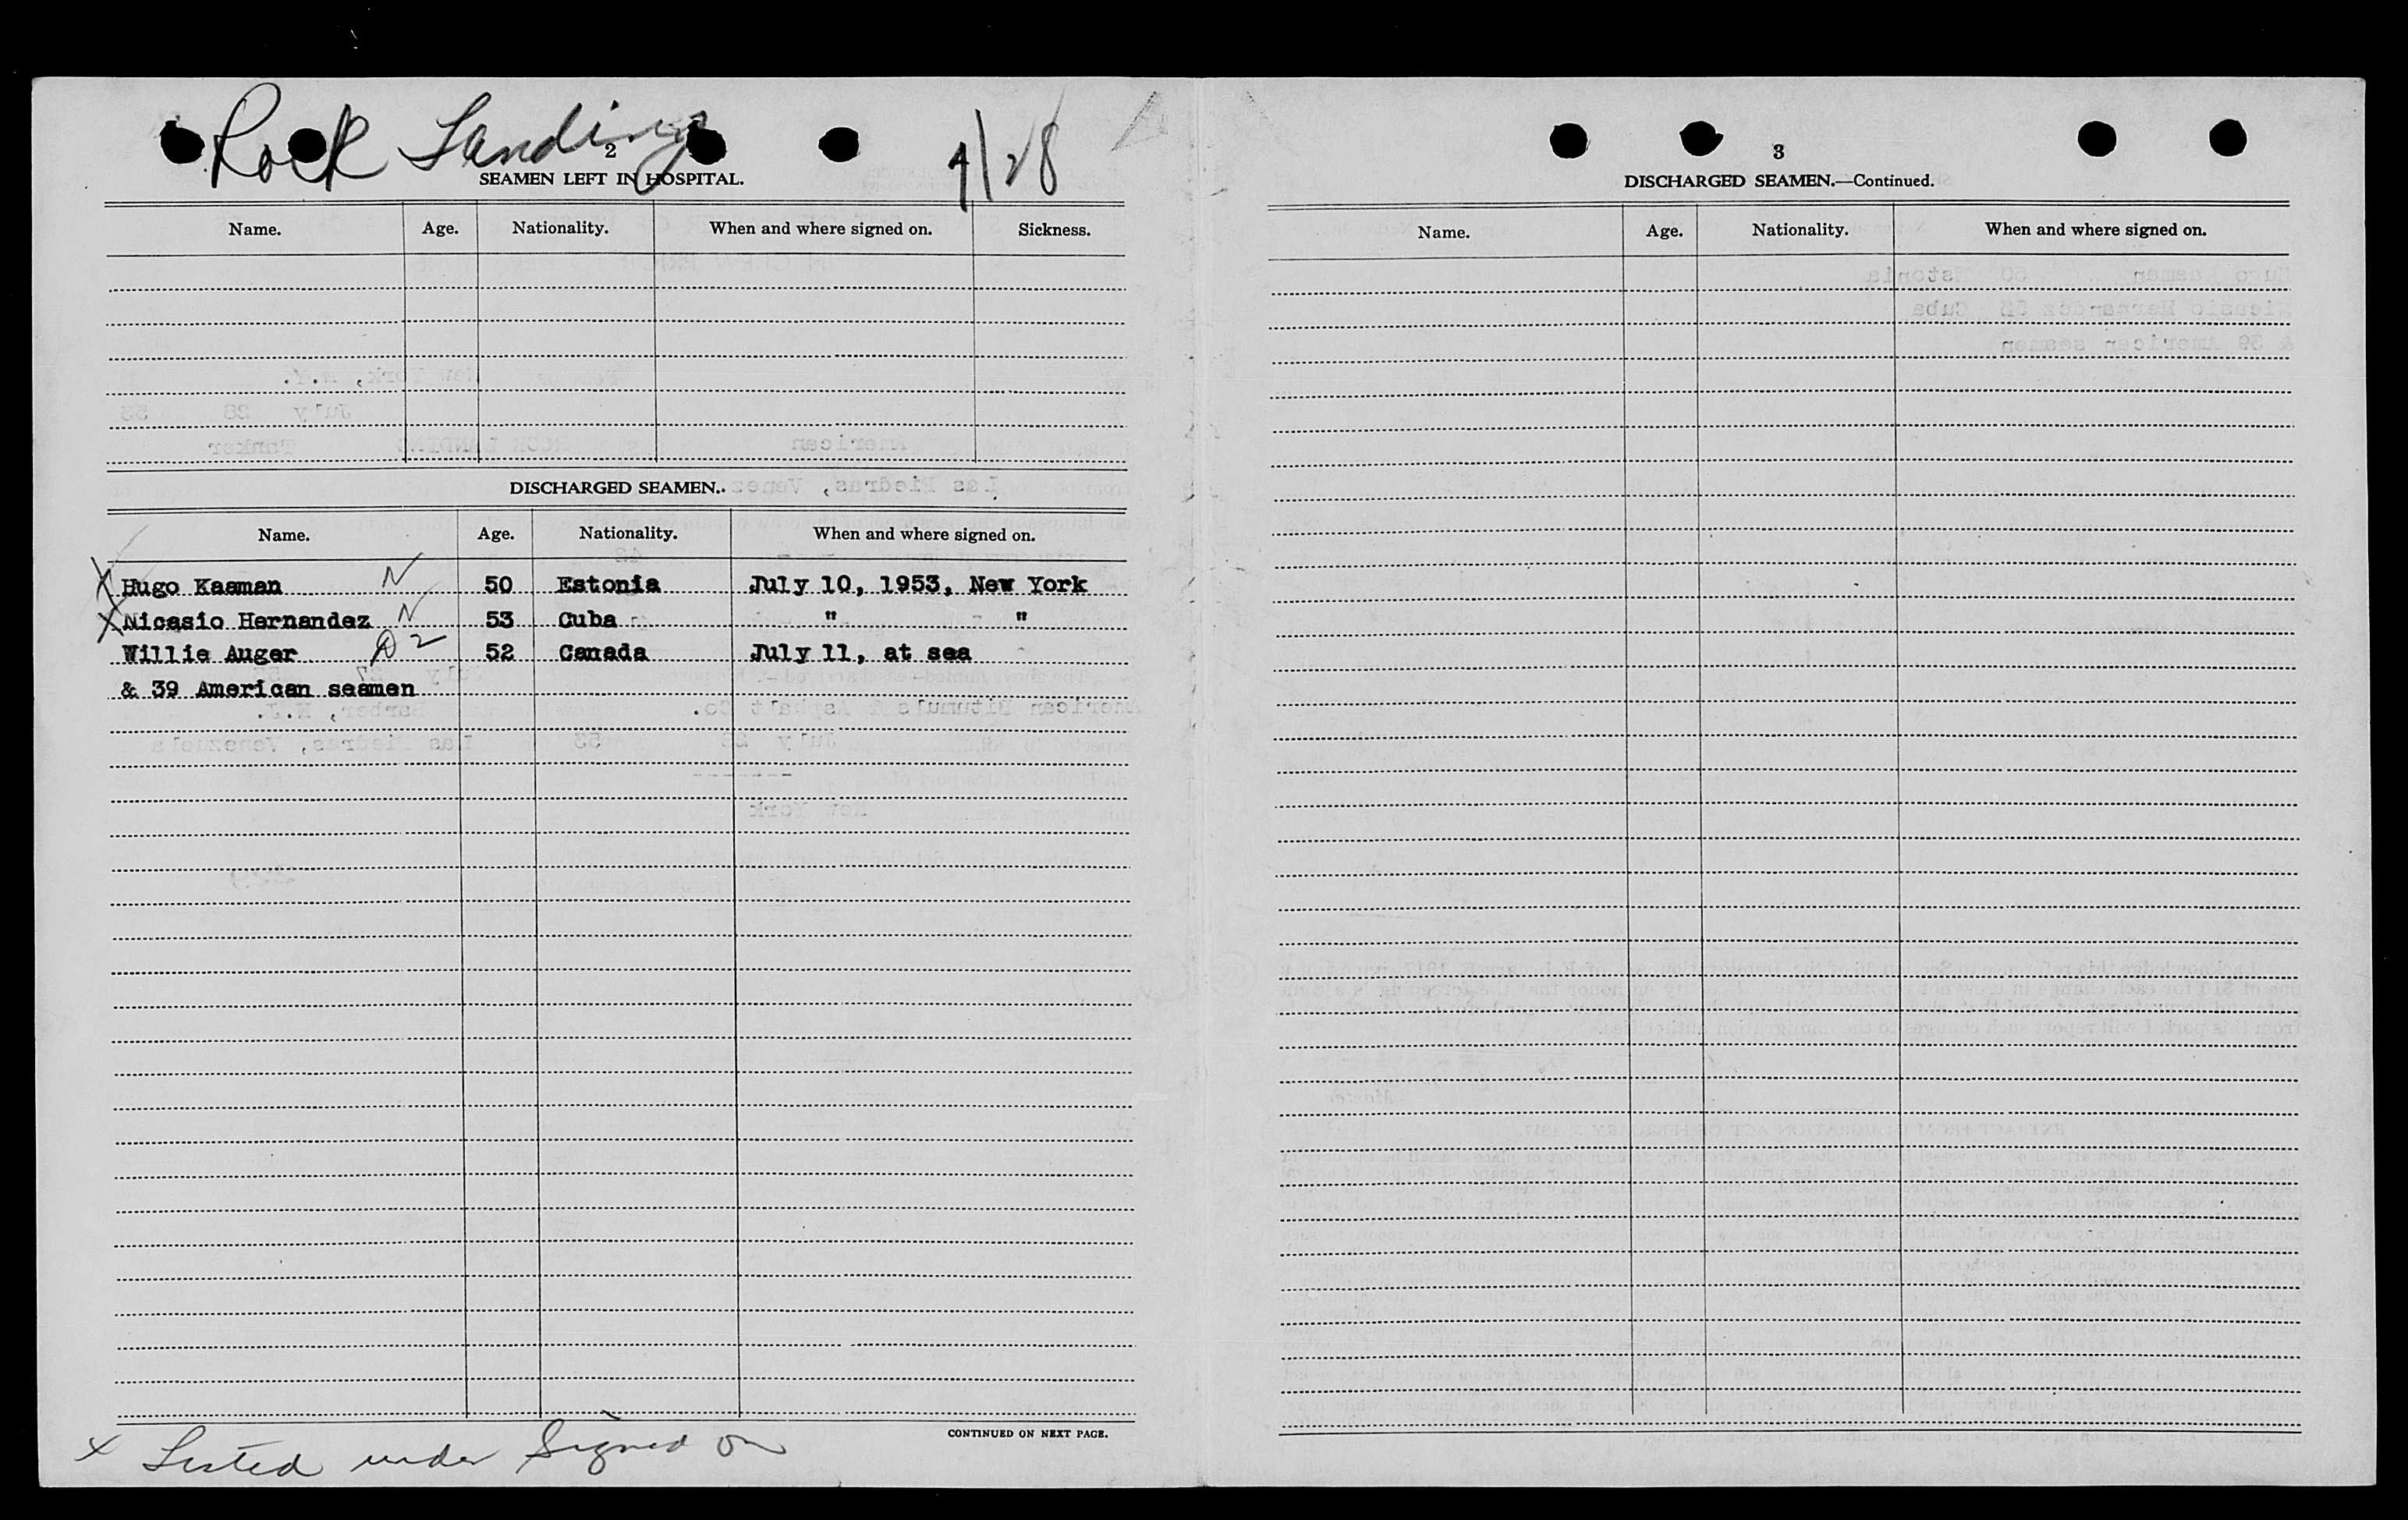 Rock Landing 7/28
2
SEAMEN LEFT IN HOSPITAL.
Name. Age. Nationality. When and where signed on. Sickness.
DISCHARGED SEAMEN.
Name. Age. Nationality. When and where signed on.
X Hugo Kaaman N 50 Estonia July 10, 1953, New York
X Nicasio Hernandez N 53 Cuba " "
Willie Auger 52 Canada July 11, at sea
& 39 American seamen
CONTINUED ON NEXT PAGE.
x Listed under Signed on
3
DISCHARGED SEAMEN.—Continued.
Name. Age. Nationality. When and where signed on.